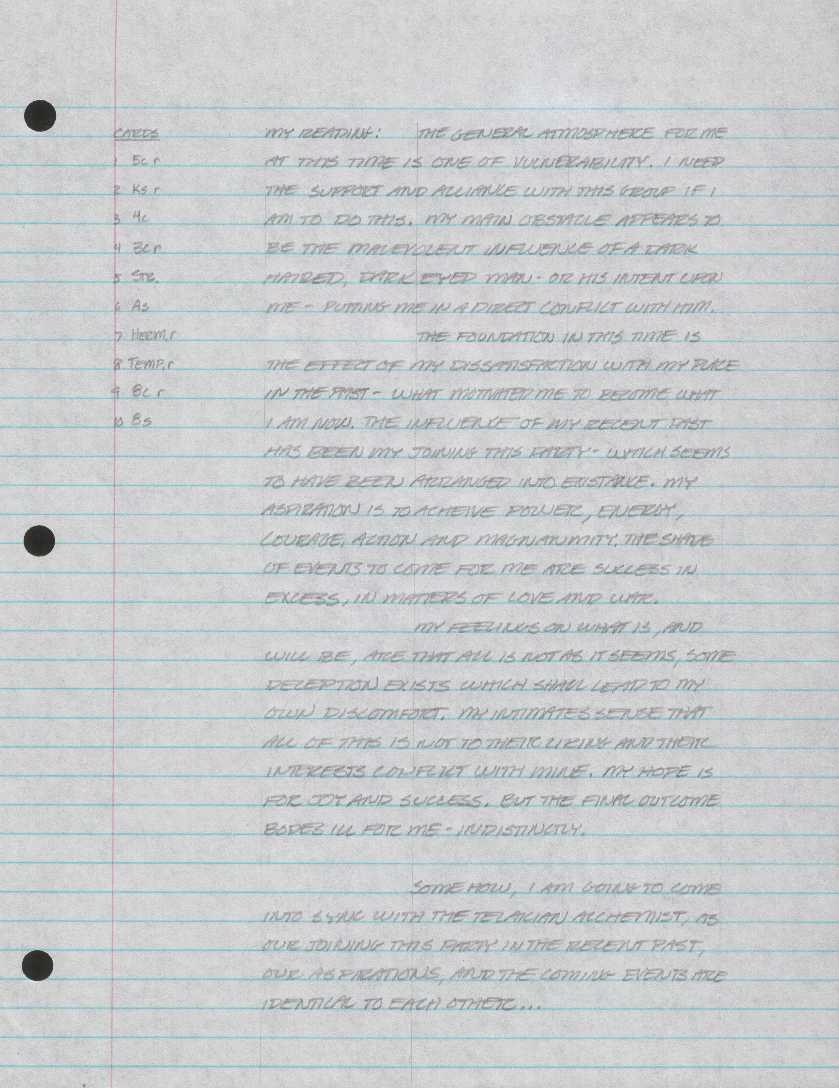 CARDS MY READING: THE GENERAL ATMOSPHERE FOR ME
1 5c r AT THIS TIME IS ONE OF VULNERABILITY. I NEED
2 Ks r THE SUPPORT AND ALLIANCE WITH THIS GROUP IF I
3 4c AM TO DO THIS. MY MAIN OBSTACLE APPEARS TO
4 3c r BE THE MALEVOLENT INFLUENCE OF A DARK
5 STR. HAIRED, DARK EYED MAN - OR HIS INTENT UPON
6 As ME - PUTTING ME IN A DIRECT CONFLICT WITH HIM.
7 HERM.r THE FOUNDATION IN THIS TIME IS
8 TEMP.r THE EFFECT OF MY DISSATISFACTION WITH MY PLACE
9 8c r IN THE PAST - WHAT MOTIVATED ME TO BECOME WHAT
10 8s I AM NOW. THE INFLUENCE OF MY RECENT PAST
HAS BEEN MY JOINING THIS PARTY - WHICH SEEMS
TO HAVE BEEN ARRANGED INTO EXISTANCE. MY
ASPIRATION IS TO ACHEIVE POWER, ENERGY,
COURAGE, ACTION AND MAGNANIMITY. THE SHAPE
OF EVENTS TO COME FOR ME ARE SUCCESS IN
EXCESS, IN MATTERS OF LOVE AND WAR.
MY FEELINGS ON WHAT IS, AND
WILL BE, ARE THAT ALL IS NOT AS IT SEEMS, SOME
DECEPTION EXISTS WHICH SHALL LEAD TO MY
OWN DISCOMFORT. MY INTIMATES SENSE THAT
ALL OF THIS IS NOT TO THEIR LIKING AND THEIR
INTERESTS CONFLICT WITH MINE. MY HOPE IS
FOR JOY AND SUCCESS. BUT THE FINAL OUTCOME
BODES ILL FOR ME - INDISTINCTLY.
SOME HOW, I AM GOING TO COME
INTO SYNC WITH THE TELAICIAN ALCHEMIST, AS
OUR JOINING THIS PARTY IN THE RECENT PAST,
OUR ASPIRATIONS, AND THE COMING EVENTS ARE
IDENTICAL TO EACH OTHER...